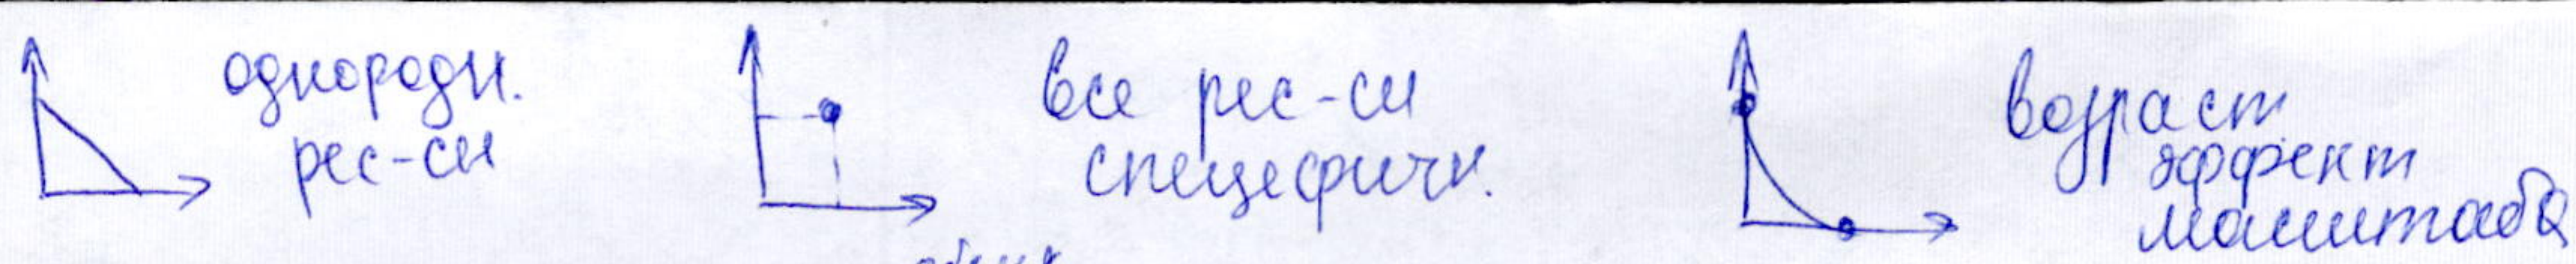 однородн.
рес-сы
все рес-сы
спецефичн.
возраст
эффект
масштаба